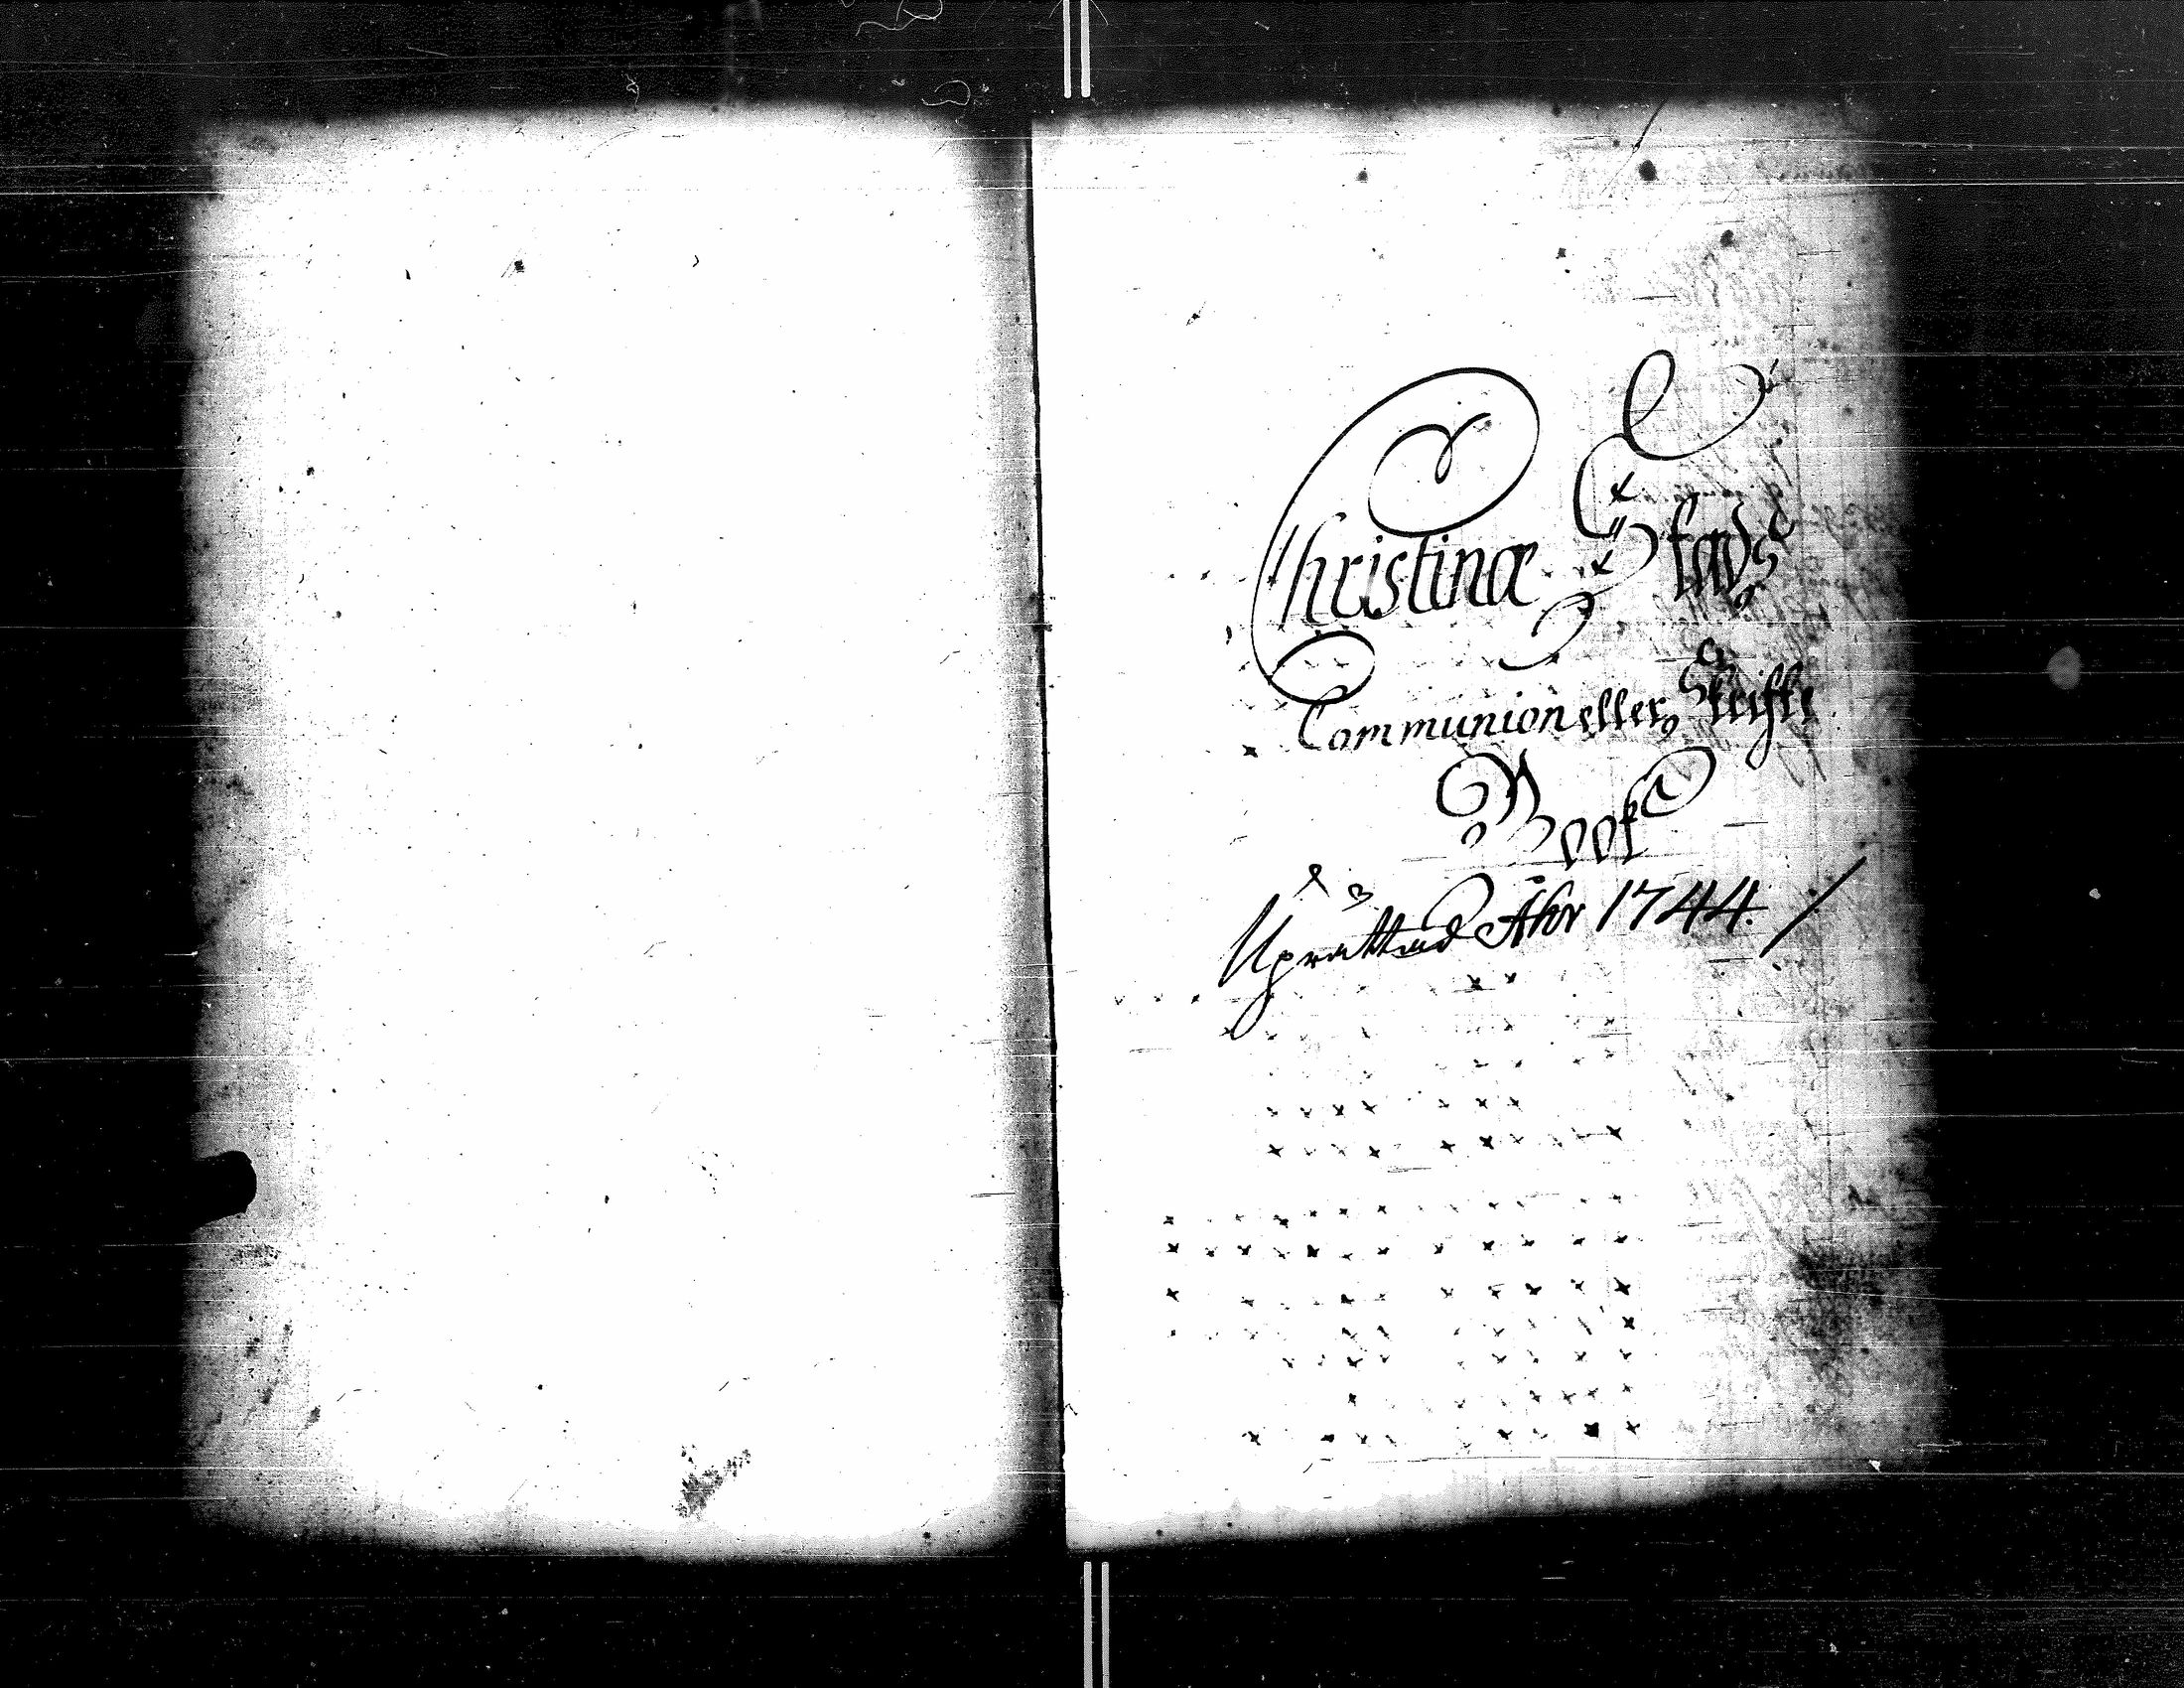 Christinæ Stads
Communion eller Skrifte
Book
Uprättad Åhr 1744. /